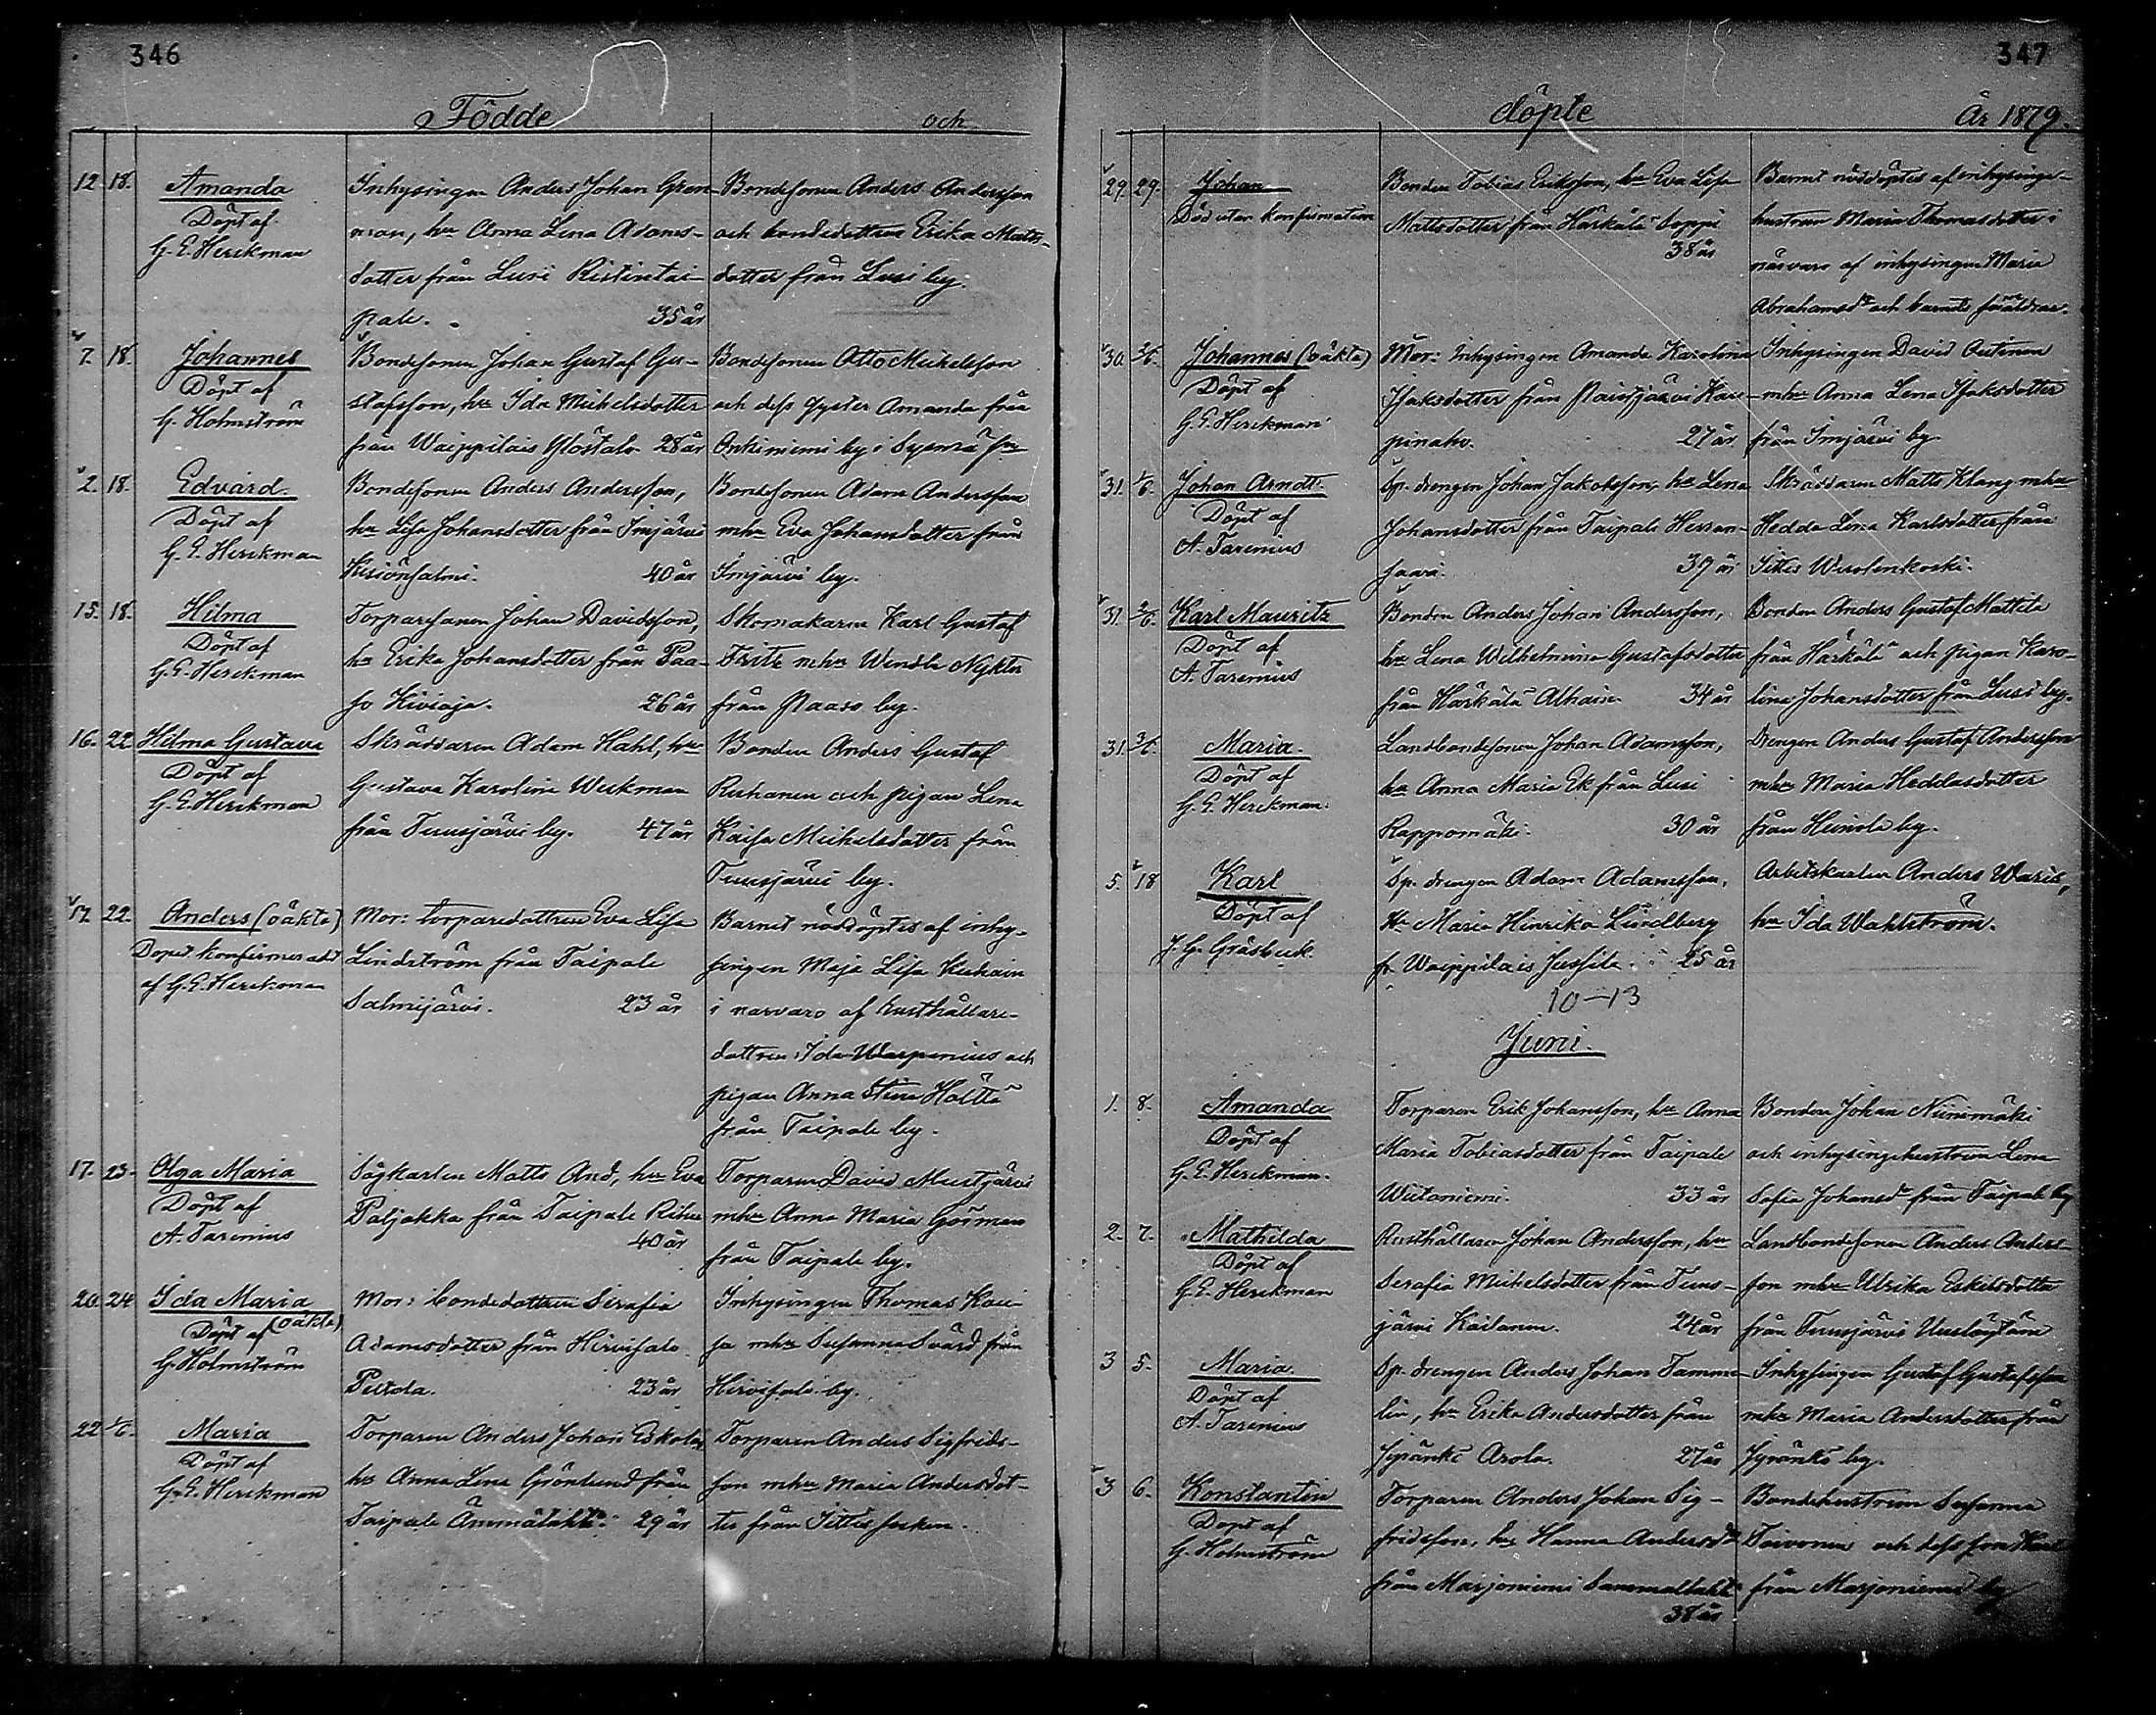 346
Födde och
12. 18. Amanda
Döpt af
G. E. Herckman
Inhysingen Anders Johan Gron-
man, hu Anna Lena Adams-
dotter från Lusi Ristinetai-
pale. 35 år
Bondesonen Anders Andersson
och bondedottren Erika Matts-
dotter från Lusi by.
7. 18. Johannes
Döpt af
G. Holmström
Bondesonen Johan Gustaf Gu-
stafsson, hu Ida Michelsdotter
från Waippilais Ylöstalo 28 år
Bondesonen Otto Michelsson
och dess syster Amanda från
Onkiniemi by i Sysmä sn
2. 18. Edvard.
Döpt af
G. E. Herckman
Bondesonen Anders Andersson,
hu Lisa Johansdotter från Imjärvi
40 år
Bondesonen Adam Andersson
mhu Eva Johansdotter från
Imjärvi by.
15. 18. Hilma
Döpt af
G. E. Herckman
Torparesonen Johan Davidsson,
hu Erika Johansdotter från Paa-
so Kivioja. 26 år
Skomakaren Karl Gustaf
Fritz mhu Wendla Nykter
från Paaso by.
16. 22. Hilma Gustava
Döpt af
G. E. Herckman
Skräddaren Adam Hahl, hu
Gustava Karolina Weckman
från Tuusjärvi by. 47 år
Bonden Anders Gustaf
Ruhanen och pigan Lena
Kaisa Michelsdotter från
Tuusjärvi by.
17. 22. Anders (oäkta)
Dopet konfirmeradt
af G. E. Herckman
Mor: torparedottren Eva Lisa
Lindström från Taipale
Salmijärvi. 23 år
Barnet nöddöptes af inhy-
singen Maja Lisa Kuhain
i närvaro af rusthållare-
dottren Ida Warpenius och
pigan Anna Stina Hölttä
från Taipale by.
17. 23. Olga Maria
Döpt af
A. Tarenius
Sågkarlen Matts And, hu Eva
Paljakka från Taipale
40 år
Torparen David Mustjärvi
mhu Anna Maria Gorman
från Taipale by.
20. 24. Ida Maria
(oäkta)
Döpt af
G. Holmström
Mor: bondedottren Serafia
Adamsdotter från Hirvisalo
Peltola. 23 år
Inhysingen Thomas Kau-
sa mhu Susanna Svärd från
Hirvisalo by.
22. 1/6. Maria
Döpt af
G. E. Herckman
Torparen Anders Johan Eskola,
hu Anna Lena Grönlund från
Taipale Ämmälähti. 29 år
Torparen Anders Sigfrids-
son mhu Maria Andersdot-
ter från Iittis socken.
347
döpte År 1879.
29. 29. Johan
Död utan konfirmation
Bonden Tobias Eriksson, hu Eva Lisa
Mattsdotter från Härkälä Seppä
38 år
Barnet nöddöptes af inhysinge-
hustrun Maria Thomasdotter i
närvaro af inhysingen Maria
Abrahamsdr och barnets föräldrar.
30. 2/6. Johannes (oäkta)
Döpt af
G. E. Herckman
Mor: Inhysingen Amanda Karolina
Isaksdotter från Paistjärvi Kau-
pinaho. 27 år
Inhysingen David Outinen
mhu Anna Lena Isaksdotter
från Imjärvi by
31. 1/6. Johan Arndt
Döpt af
A. Tarenius
Sp. drengen Johan Jakobsson, hu Lena
Johansdotter från Taipale Herran-
saari. 39 år
Skräddaren Matts Klang mhu
Hedda Lena Karlsdotter från
Iittis Wuolenkoski.
31. 2/6. Karl Mauritz
Döpt af
A. Tarenius
Bonden Anders Johan Andersson,
hu Lena Wilhelmina Gustafsdotter
från Härkälä Alhain 34 år
Bonden Anders Gustaf Mattila
från Härkälä och pigan Karo-
lina Johansdotter från Lusi by.
31. 3/6. Maria.
Döpt af
G. E. Herckman.
Landbondesonen Johan Adamsson,
hu Anna Maria Ek från Lusi
Rappomäki. 30 år
Drengen Anders Gustaf Andersson
mhu Maria Heddasdotter
från Heinola by.
5. 18 Karl
Döpt af
J. G. Gråsbeck.
Sp. drengen Adam Adamsson,
Hu Maria Henrika Lundberg
fr. Waippilais Jussila. 25 år
Arbetskarlen Anders Waris,
hu Ida Wahlström.
10-13
Juni.
1. 8. Amanda
Döpt af
G. E. Herckman.
Torparen Erik Johansson, hu Anna
Maria Tobiasdotter från Taipale
Wiitaniemi. 33 år
Bonden Johan Nummäki
och inhysingehustrun Lena
Sofia Johansdr från Taipale by
2. 7. Mathilda
Döpt af
G. E. Herckman
Rusthållaren Johan Andersson, hu
Serafia Michelsdotter från Tuus-
järvi Kailanen. 24 år
Landbondesonen Anders Anders-
son mhu Ulrika Eskilsdotter
från Tuusjärvi
3 5. Maria.
Döpt af
A. Tarenius
Sp. drengen Anders Johan Tamme-
lin, hu Erika Andersdotter från
Jyränkö Arola. 27 år
Inhysingen Gustaf Gustafsson
mhu Maria Andersdotter från
Jyränkö by.
3 6. Konstantin
Döpt af
G. Holmström
Torparen Anders Johan Sig-
fridsson, hu Hanna Andersdr
från Marjoniemi Sammallahti
38 år
Bondehustrun Susanna
Toivonen och dess son Karl
från Marjoniemi by